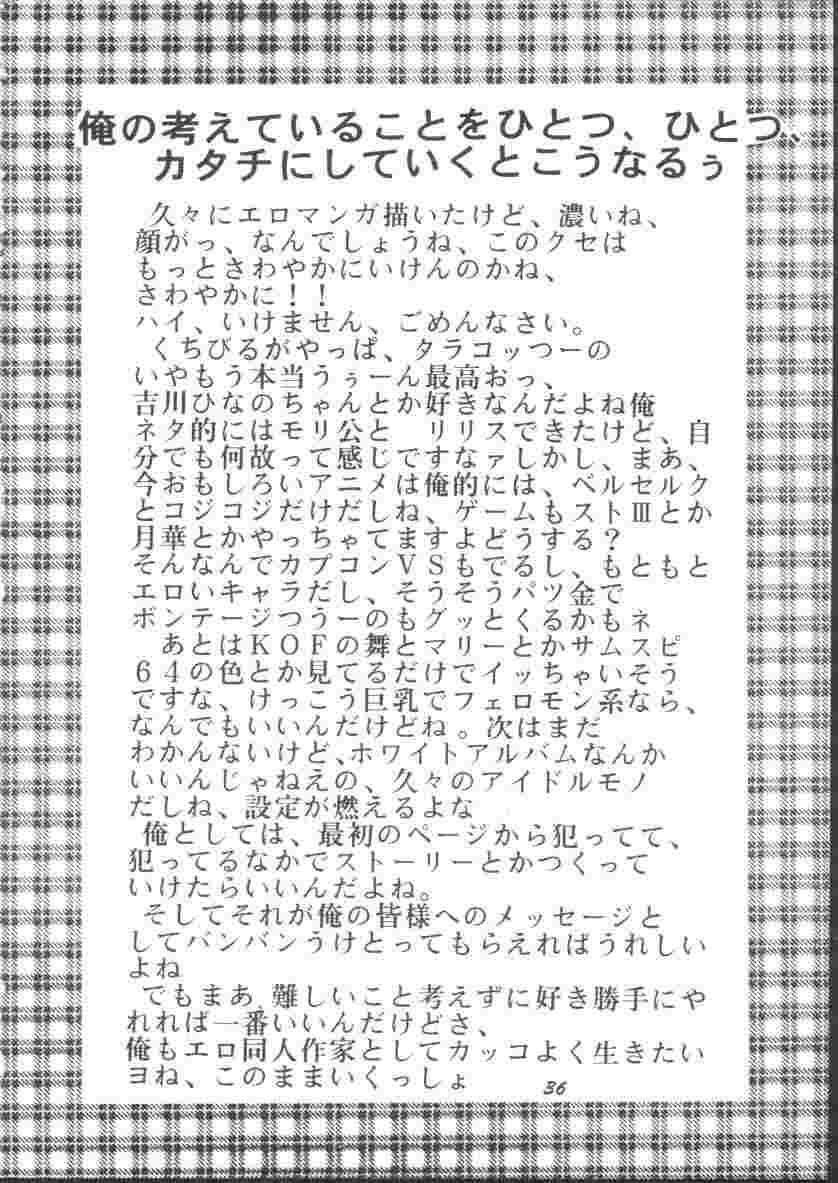 俺の考えていることをひとつ、ひとつ、
カタチにしていくとこうなるぅ
久々にエロマンガ描いたけど、濃いね、
顔がっ、なんでしょうね、このクセは
もっとさわやかにいけんのかね、
さわやかに！！
ハイ、いけません、ごめんなさい。
くちびるがやっぱ、タラコッつーの
いやもう本当うぅーん最高おっ、
吉川ひなのちゃんとか好きなんだよね俺
ネタ的にはモリ公と　リリスできたけど、自
分でも何故って感じですなァしかし、まあ、
今おもしろいアニメは俺的には、ベルセルク
とコジコジだけだしね、ゲームもストⅢとか
月華とかやっちゃてますよどうする？
そんなんでカプコンＶＳもでるし、もともと
エロいキャラだし、そうそうパツ金で
ボンテージつうーのもグッとくるかもネ
あとはＫＯＦの舞とマリーとかサムスピ
６４の色とか見てるだけでイッちゃいそう
ですな、けっこう巨乳でフェロモン系なら、
なんでもいいんだけどね。次はまだ
わかんないけど、ホワイトアルバムなんか
いいんじゃねえの、久々のアイドルモノ
だしね、設定が燃えるよな
俺としては、最初のページから犯ってて、
犯ってるなかでストーリーとかつくって
いけたらいいんだよね。
そしてそれが俺の皆様へのメッセージと
してバンバンうけとってもらえればうれしい
よね
でもまあ、難しいこと考えずに好き勝手にや
れれば一番いいんだけどさ、
俺もエロ同人作家としてカッコよく生きたい
ヨね、このままいくっしょ
36